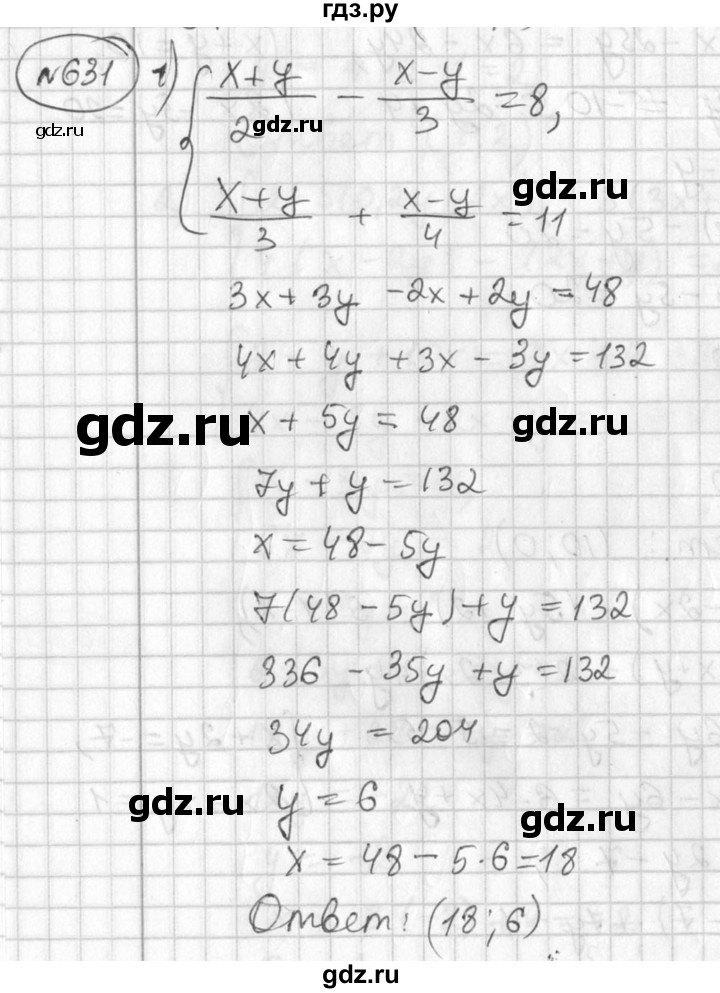 гдз.ру
№631 1) { (x+y)/2 - (x-y)/3 = 8,
gdz.ru
gdz.ru
gdz.ru
(x+y)/3 + (x-y)/4 = 11
3x + 3y - 2x + 2y = 48
4x + 4y + 3x - 3y = 132
gdz.ru
x + 5y = 48
gdz.ru
7y + y = 132
x = 48 - 5y
gdz.ru
7(48 - 5y) + y = 132
336 - 35y + y = 132
gdz.ru
34y = 204
gdz.ru
y = 6
gdz.ru
x = 48 - 5·6 = 18
Ответ: (18; 6)
gdz.ru